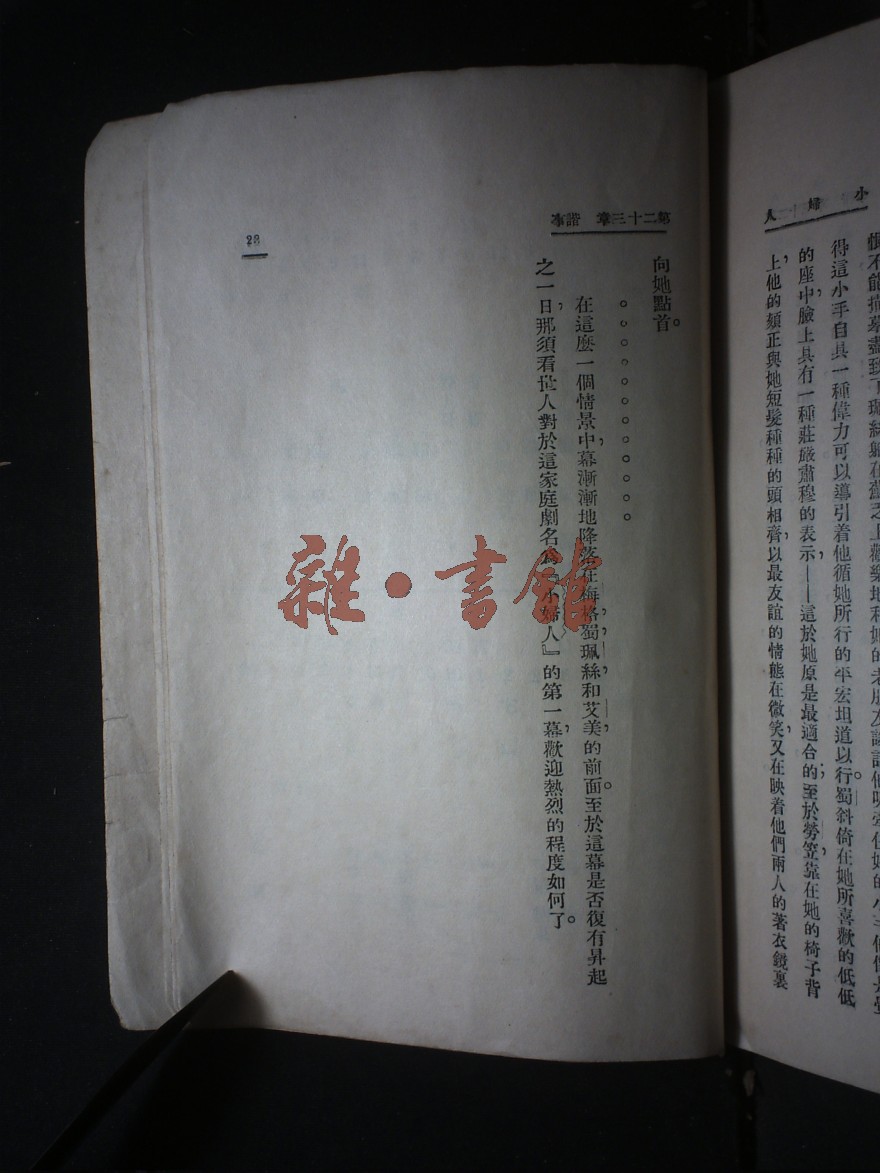 小婦人
慣不能描摹盡致了珮絲躺在
之上歡樂地和她的老朋友談話他
得這小手自具一種偉力可以導引着他循她所行的平宏坦道以行。蜀斜倚在她所喜歡的低低
的座中，臉上具有一種莊嚴肅穆的表示——這於她原是最適合的；至於勞笠，靠在她的椅子背
上，他的頦正與她短髮種種的頭相齊，以最友誼的情態在微笑，又在映着他們兩人的著衣鏡裏
第二十三章 諧事
向她點首。
。。。。。。。。。。
在這麼一個情景中，幕漸漸地降落在海格，蜀，珮絲，和艾美的前面。至於這幕是否復有昇起
之一日，那須看世人對於這家庭劇名為『小婦人』的第一幕，歡迎熱烈的程度如何了。
28
雜·書館